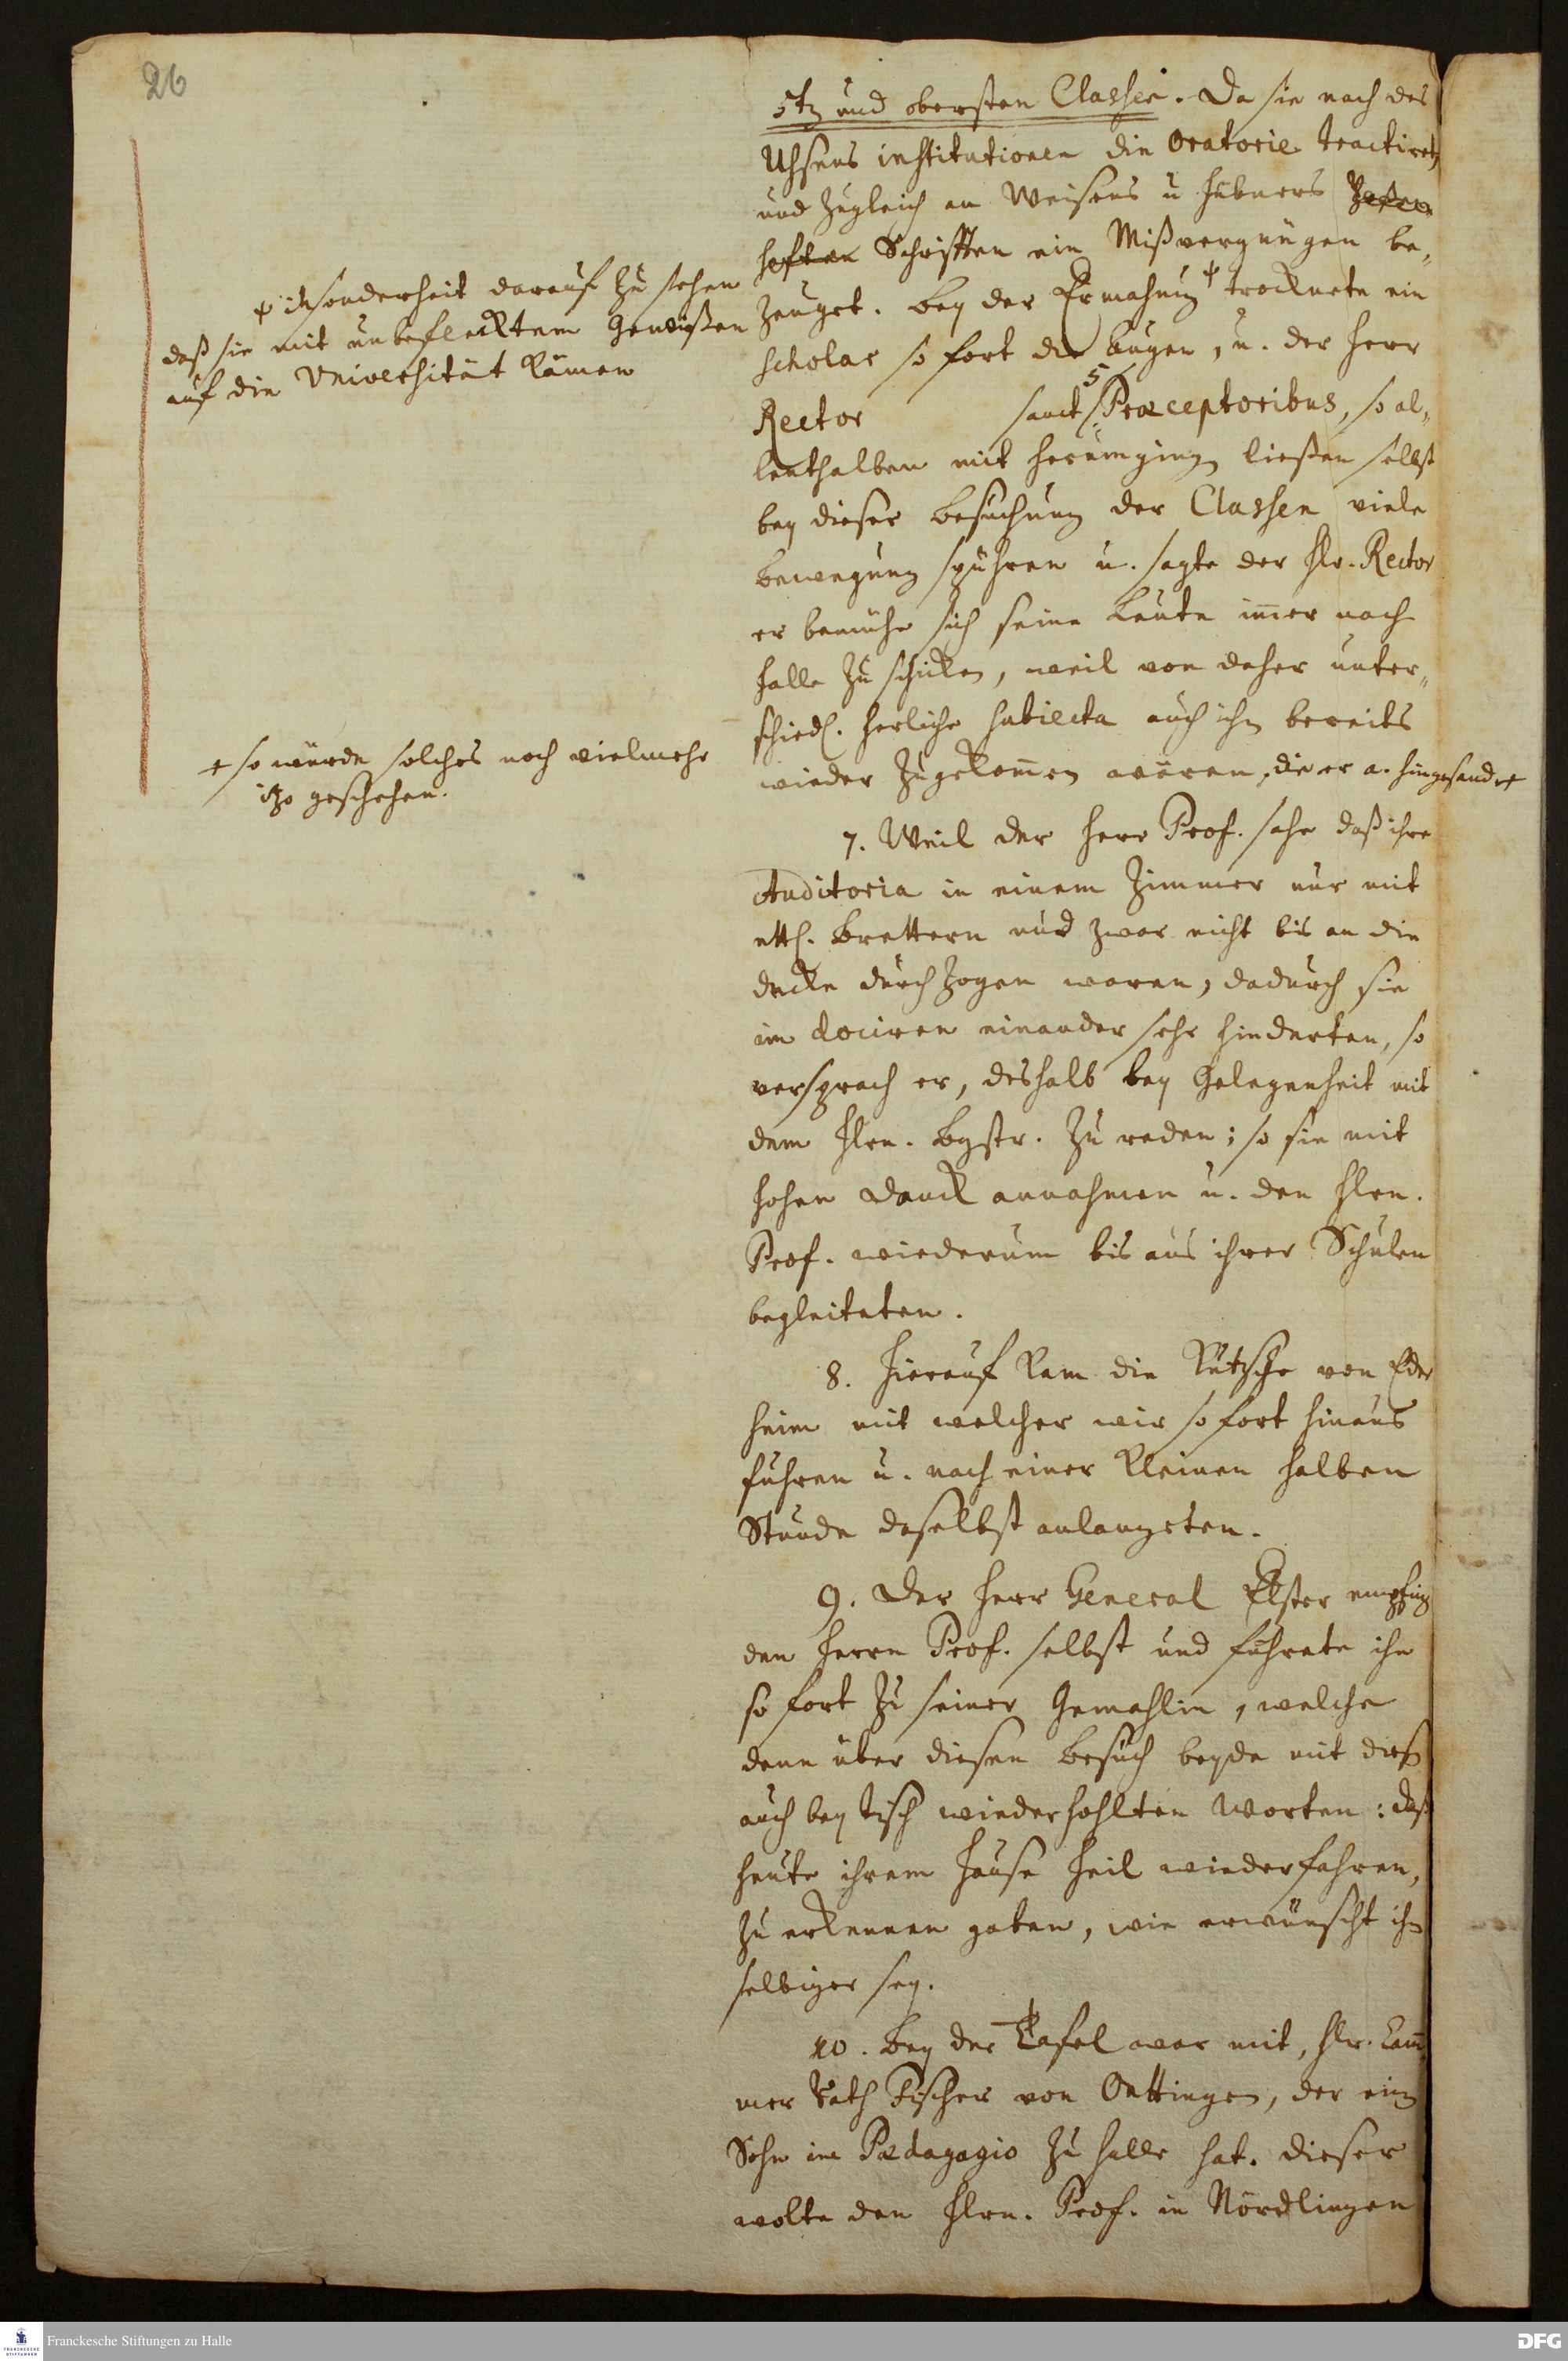 26
5t. und obersten Classen. Da sie nach des
Uhsens institutionen die Oratorie tractiret,
und zugleich an Weisens u Hubners
Schrifften ein Mißvergnügen be„
zeuget. Bey der Ermahnung + trocknete ein
Scholar so fort die Augen, u. der Herr
Rector samt 5 Præceptoribus, so al„
lenthalben mit herumging ließen selbst
bey dieser Besuchung der Classen viele
Bewegung spühren u. sagte der Hr. Rector
er bemühe sich seine Leute im̄er nach
Halle zu schicken, weil von daher unter„
schiedl. herliche Subiecta auch ihm bereits
wieder zugekom̄en wären, die er a. hingesandt +
+ insonderheit darauf zu sehen
daß sie mit unbeflecktem Gewißen
auf die Universität kämen
+ so würde solches noch vielmehr
itzo geschehen.
7. Weil der Herr Prof. sahe daß ihre
Auditoria in einem Zimmer nur mit
ettl. Brettern und zwar nicht bis an die
decke durchzogen waren, dadurch sie
im dociren einander sehr hinderten, so
versprach er, deshalb bey Gelegenheit mit
dem Hrn. Bgstr. zu reden; so sie mit
hohen Danck annahmen u. den Hrn.
Prof. wiederum bis aus ihrer Schulen
begleiteten.
8. Hierauf kam die Kutsche von Eder
heim mit welcher wir so fort hinaus
fuhren u. nach einer kleinen halben
Stunde daselbst anlangeten.
9. Der Herr General Elster empfing
den Herrn Prof. selbst und führete ihn
so fort zu seiner Gemahlin, welche
denn über diesen Besuch beyde mit dies
auch bey Tisch wiederhohlten Worten: daß
heute ihrem Hause Heil wiederfahren,
zu erkennen gaben, wie erwünscht ihn
selbiger sey.
10. Bey der Tafel war mit, Hr. Cam̄
mer Rath Fischer von Oettingen, der ein
Sohn im Pædagogio zu Halle hat. Dieser
wolte den Hrn. Prof. in Nördlingen
Franckesche Stiftungen zu Halle
DFG